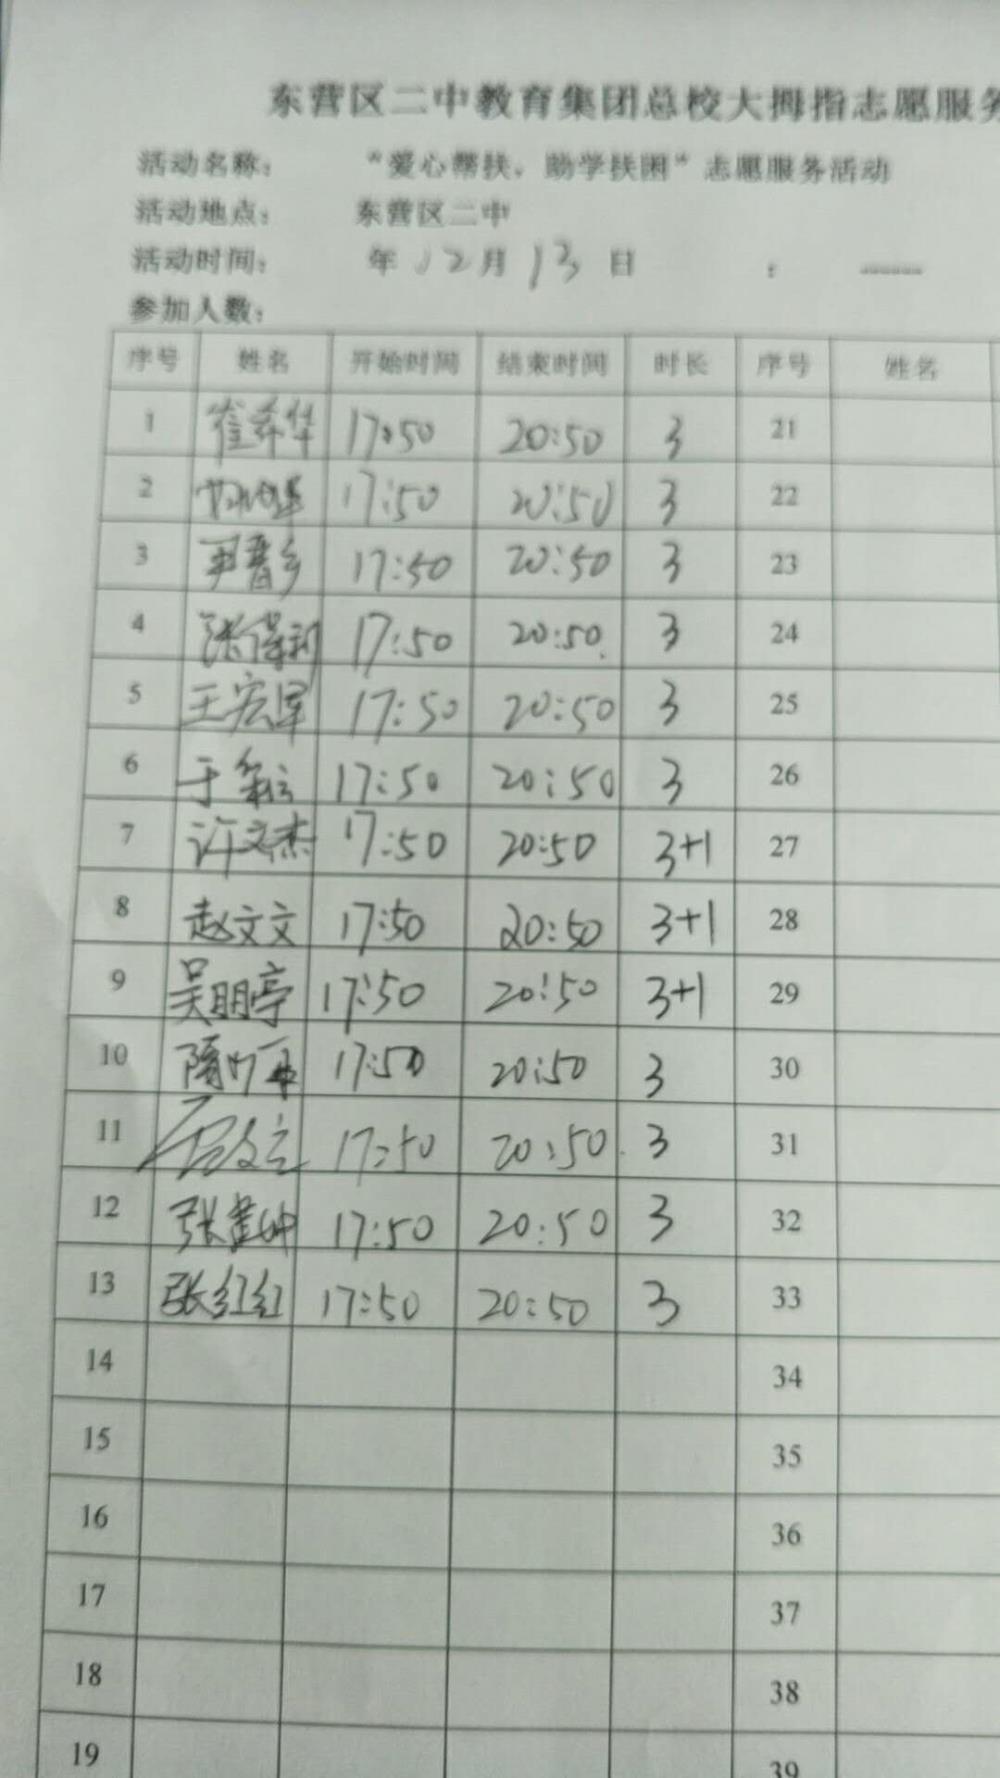 东营区二中教育集团总校大拇指志愿服务
活动名称： “爱心帮扶，助学扶困”志愿服务活动
活动地点： 东营区二中
活动时间： 年 12 月 13 日 : ------
参加人数：
序号 姓名 开始时间 结束时间 时长 序号 姓名
1 17:50 20:50 3 21
2 17:50 20:50 3 22
3 17:50 20:50 3 23
4 17:50 20:50 3 24
5 王宏军 17:50 20:50 3 25
6 17:50 20:50 3 26
7 许文杰 17:50 20:50 3+1 27
8 赵文文 17:50 20:50 3+1 28
9 吴明亭 17:50 20:50 3+1 29
10 17:50 20:50 3 30
11 17:50 20:50 3 31
12 17:50 20:50 3 32
13 张红红 17:50 20:50 3 33
14 34
15 35
16 36
17 37
18 38
19 39